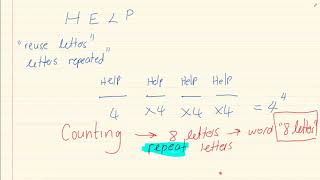 HELP
"reuse letters"
letters repeated"
Help Help Help Help
4 x4 x4 x4 = 4⁴
Counting → 8 letters → word "8 letters"
repeat letters